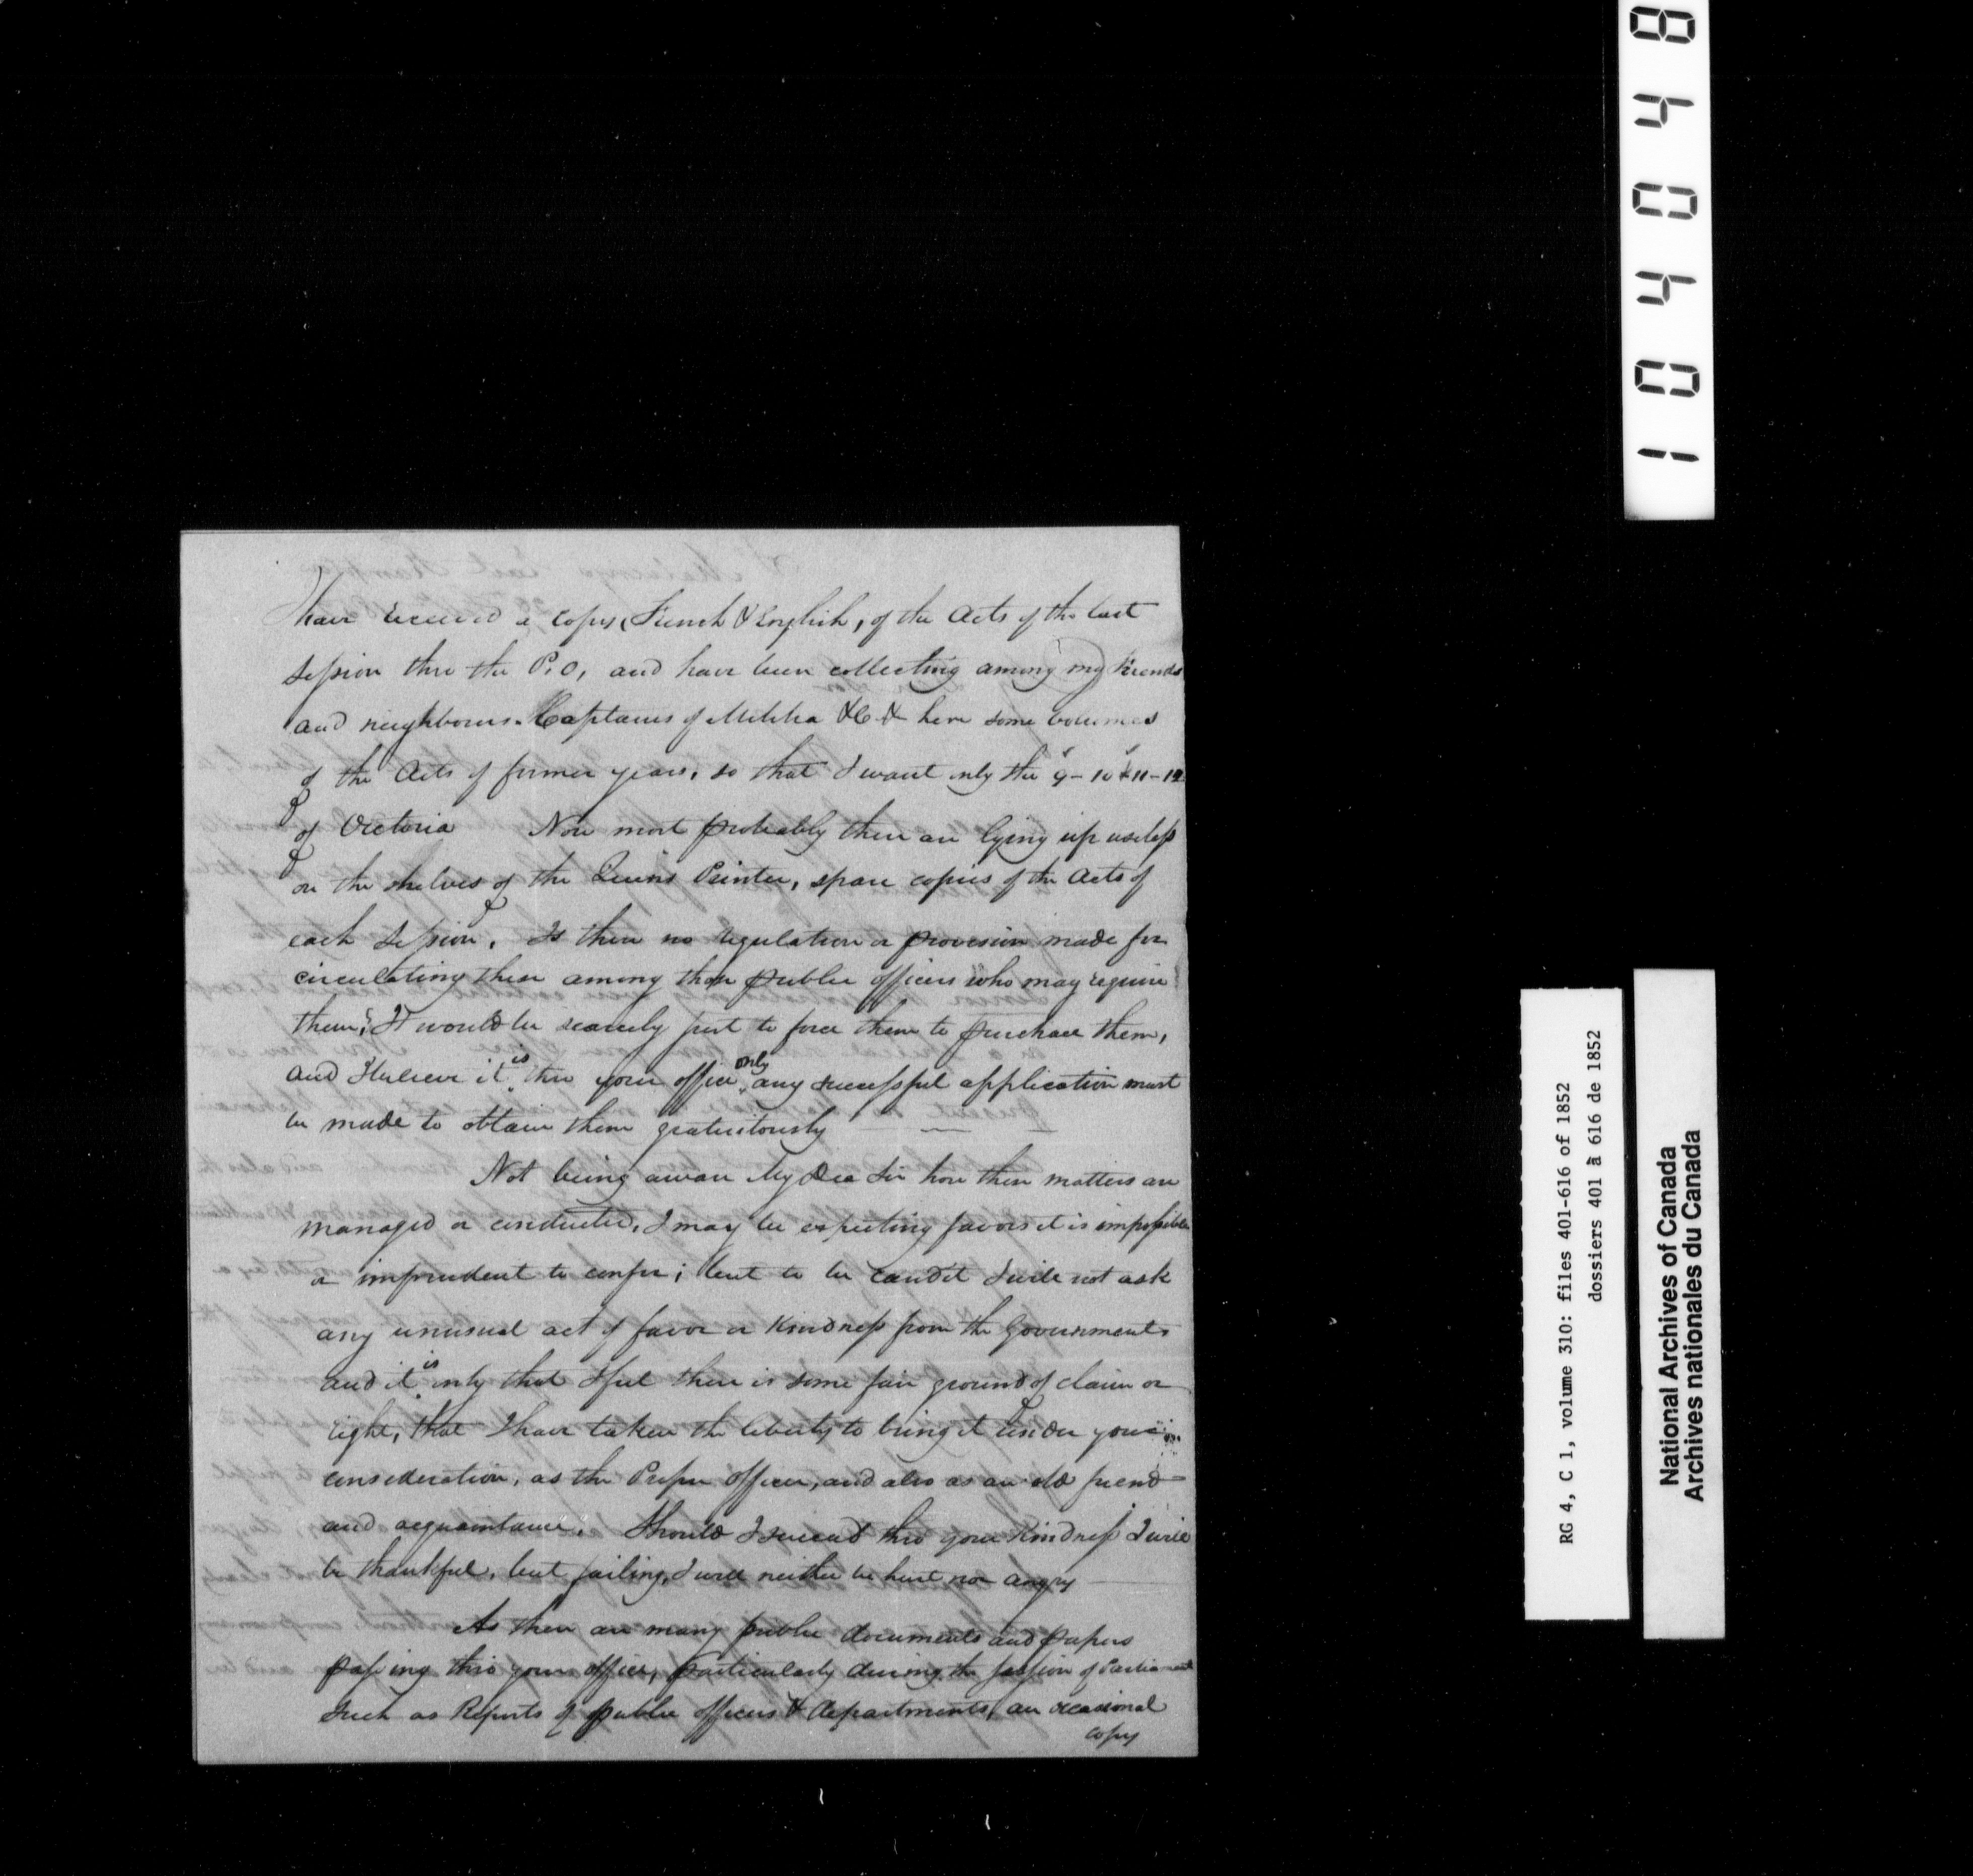 have received a copy, French & English, of the Acts of the last
Session thro the P.O, and have been collecting among my friends
and neighbours. Captains of Militia &c & have some volumes
of the Acts of former years, so that I want only the 9 - 10 & 11 - 12
of Victoria Now most probably there are lying up useless
on the shelves of the Queens Printer, spare copies of the Acts of
each Session. Is there no regulation or provision made for
circulating these among those public officers who may require
them? It would be scarcely just to force them to purchase them,
and I believe it is thro your office only any successful application must
be made to obtain them gratuitously
Not being aware My Dea Sir how these matters are
managed or conducted, I may be expecting favors it is impossible
or imprudent to confer; but to be candid I will not ask
any unusual act of favor or kindness from the Governments
and it is only that I feel there is some fair ground of claim or
right, that I have taken the liberty to bring it under your
consideration, as the Proper Officer, and also as an old friend
and acquaintance. Should I succeed thro your kindness I will
be thankful, but failing, I will neither be hurt nor angry
As there are many public documents and papers
passing thro your office, particularly during the session of Parliament
Such as Reports of public officers & departments, an occasional
copy
104048
RG 4, C 1, volume 310: files 401-616 of 1852
dossiers 401 à 616 de 1852
National Archives of Canada
Archives nationales du Canada